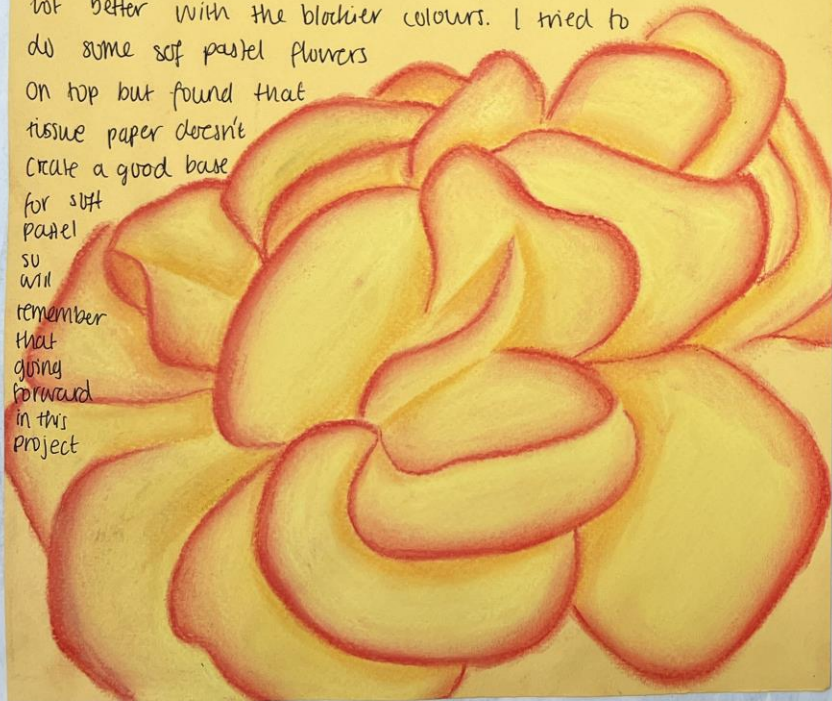 lot better with the blockier colours. I tried to
do some sof pastel flowers
on top but found that
tissue paper doesn't
create a good base
for soft
pastel
so
will
remember
that
going
forward
in this
project